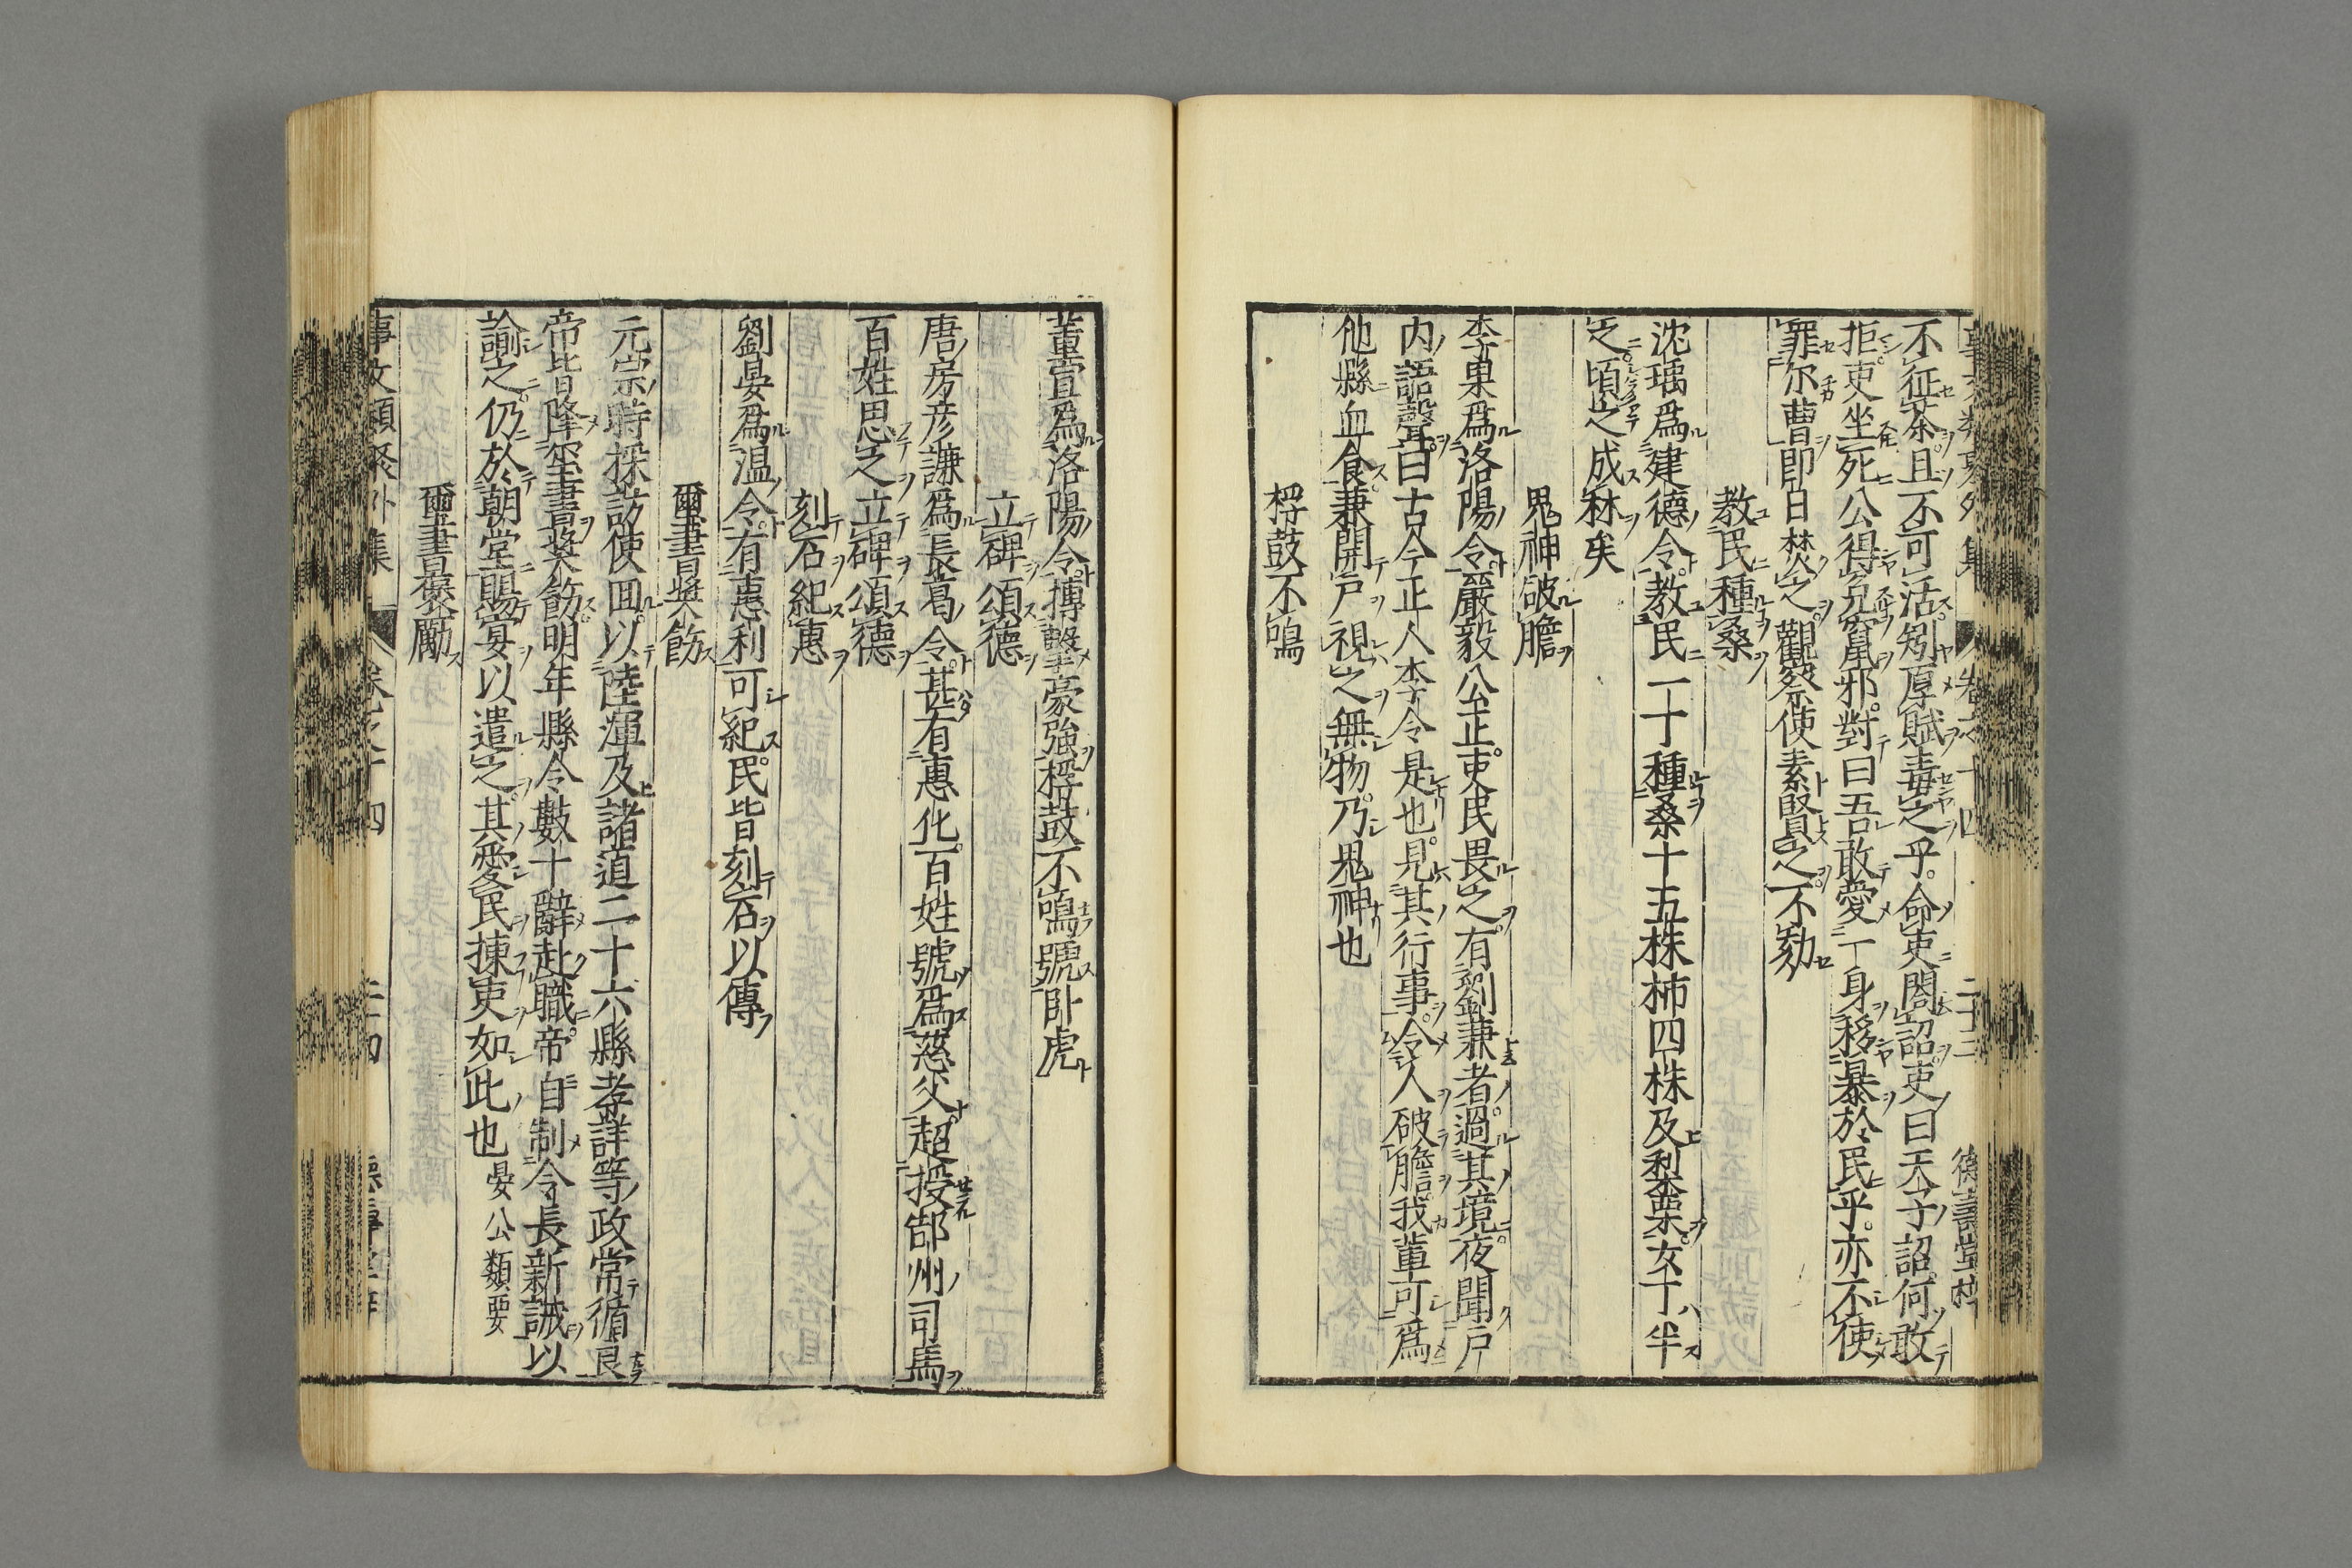 不征茶且不可活矧厚賦毒之乎命吏閣詔吏曰天子詔何敢
拒吏坐死公得免竄邪對曰吾敢愛一身移暴於民乎亦不使
罪尔曹即自焚之觀察使素賢之不劾
教民種桑
沈瑀爲建德令教民一丁種桑十五株柿四株及梨栗女丁半
之頃之成林矣
鬼神破膽
李果爲洛陽令嚴毅公正吏民畏之有劉兼者過其境夜聞戶
內語聲曰古今正人李令是也見其行事令人破膽我軰可爲
他縣血食兼開戶視之無物乃鬼神也
桴鼓不鳴
董宣爲洛陽令搏擊豪強桴鼓不鳴號卧虎
立碑頌德
唐房彦謙爲長葛令甚有惠化百姓號爲慈父超授鄀州司馬
百姓思之立碑頌德
刻石紀惠
劉晏爲温令有惠利可紀民皆刻石以傳
璽書奨飭
元宗時採訪使回以陸渾及諸道二十六縣孝詳等政常循良
帝皆降璽書奨飭明年縣令數十辭赴職帝自制令長新誡以
諭之仍於朝堂賜宴以遣之其愛民揀吏如此也 晏公類要
璽書褒勵
事文類聚外集 卷之十四